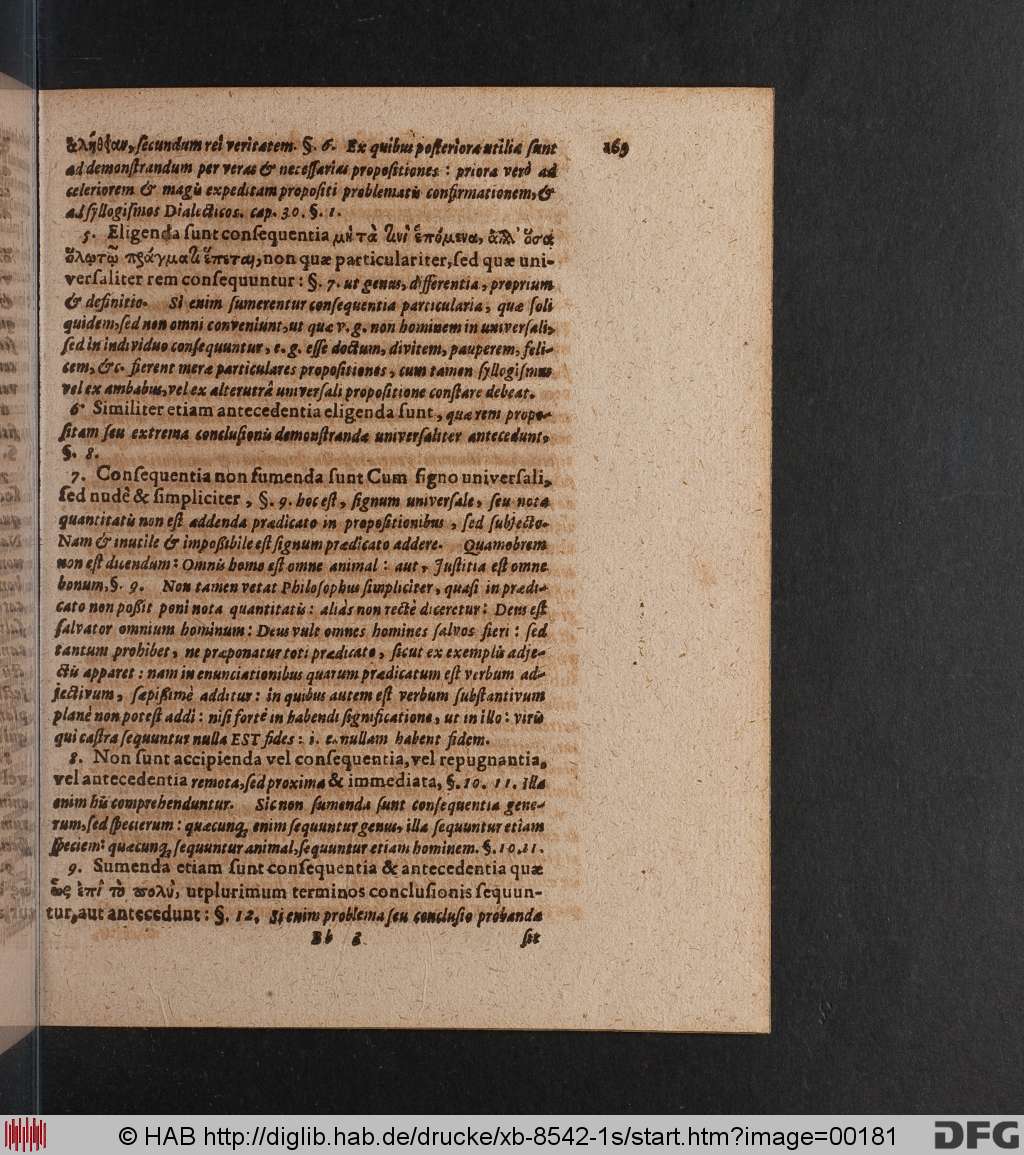 ἀλήθειαν, ſecundum rei veritatem. §. 6. Ex quibus poſteriora utilia ſunt
169
ad demonſtrandum per veras & neceſſarias propoſitiones : priora verò ad
celeriorem & magis expeditam propoſiti problematis confirmationem, &
ad ſyllogiſmos Dialecticos. cap. 30. §. 1.
5. Eligenda ſunt conſequentia μὴ τὰ τινὶ ἑπόμενα, ἀλλ' ὅσα
ὅλῳ τῷ πράγματι ἕπεται, non quæ particulariter, ſed quæ uni-
verſaliter rem conſequuntur : §. 7. ut genus, differentia, proprium
& definitio. Si enim ſumerentur conſequentia particularia, quæ ſoli
quidem, ſed non omni conveniunt, ut quæ v. g. non hominem in univerſali,
ſed in individuo conſequuntur, e. g. eſſe doctum, divitem, pauperem, feli-
cem, &c. fierent meræ particulares propoſitiones, cum tamen ſyllogiſmus
vel ex ambabus, vel ex alterutrâ univerſali propoſitione conſtare debeat.
6. Similiter etiam antecedentia eligenda ſunt, quæ rem propo-
ſitam ſeu extrema concluſionis demonſtrandæ univerſaliter antecedunt,
§. 8.
7. Conſequentia non ſumenda ſunt Cum ſigno univerſali,
ſed nudè & ſimpliciter, §. 9. hoc eſt, ſignum univerſale, ſeu nota
quantitatis non eſt addenda prædicato in propoſitionibus, ſed ſubjecto.
Nam & inutile & impoßibile eſt ſignum prædicato addere. Quamobrem
non eſt dicendum : Omnis homo eſt omne animal : aut, Juſtitia eſt omne
bonum, §. 9. Non tamen vetat Philoſophus ſimpliciter, quaſi in prædi-
cato non poßit poni nota quantitatis : aliàs non rectè diceretur : Deus eſt
ſalvator omnium hominum : Deus vult omnes homines ſalvos fieri : ſed
tantum prohibet, ne præponatur toti prædicato, ſicut ex exemplis adje-
ctis apparet : nam in enunciationibus quarum prædicatum eſt verbum ad-
jectivum, ſæpißimè additur : in quibus autem eſt verbum ſubſtantivum
planè non poteſt addi : niſi fortè in habendi ſignificatione, ut in illo : viris
qui caſtra ſequuntur nulla EST fides : i. e. nullam habent fidem.
8. Non ſunt accipienda vel conſequentia, vel repugnantia,
vel antecedentia remota, ſed proxima & immediata, §. 10. 11. illa
enim his comprehenduntur. Sic non ſumenda ſunt conſequentia gene-
rum, ſed ſpecierum : quæcunq, enim ſequuntur genus, illa ſequuntur etiam
ſpeciem : quæcunq, ſequuntur animal, ſequuntur etiam hominem. §. 10. 11.
9. Sumenda etiam ſunt conſequentia & antecedentia quæ
ὡς ἐπὶ τὸ πολὺ, utplurimum terminos concluſionis ſequun-
tur, aut antecedunt : §. 12. Si enim problema ſeu concluſio probanda
Bb
ſit
© HAB http://diglib.hab.de/drucke/xb-8542-1s/start.htm?image=00181
DFG